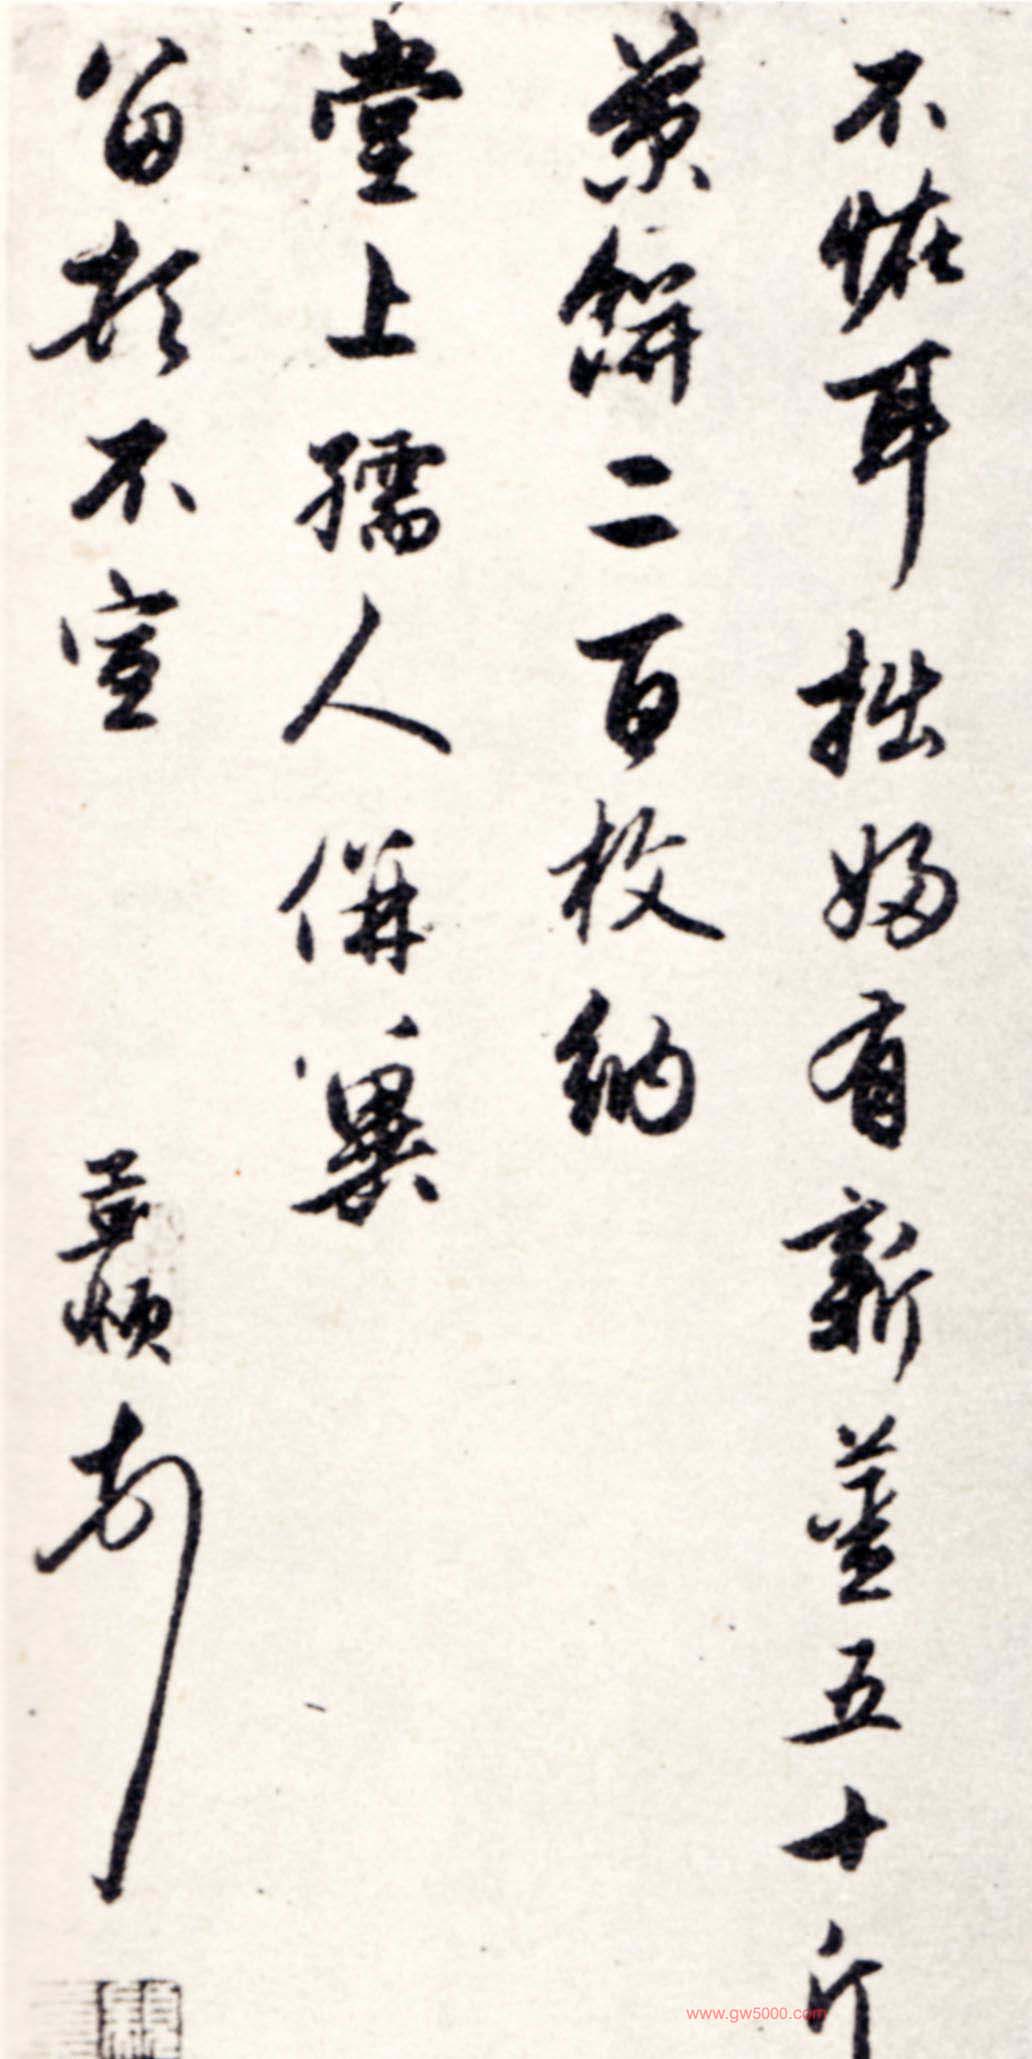 不恠耳拙婦有新薑五十斤
餅二百枚納
堂上孺人併冀
留頓不宣 孟頫
www.gw5000.com